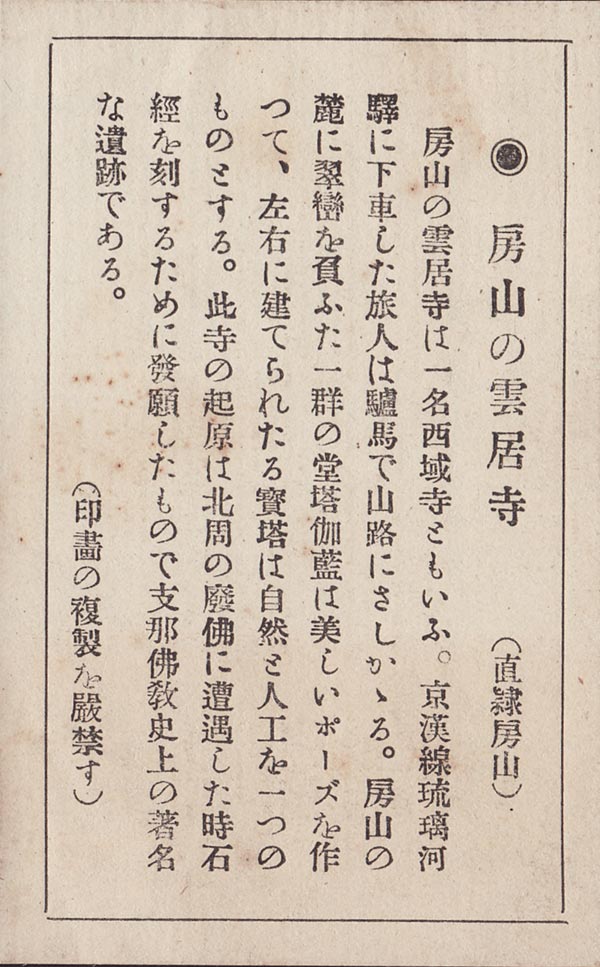 ◉ 房山の雲居寺 （直隷房山）
房山の雲居寺は一名西域寺ともいふ。京漢線琉璃河
驛に下車した旅人は驢馬で山路にさしかゝる。房山の
麓に翠巒を負ふた一群の堂塔伽藍は美しいポーズを作
つて、左右に建てられたる寳塔は自然と人工を一つの
ものとする。此寺の起原は北周の廢佛に遭遇した時石
經を刻するために發願したもので支那佛敎史上の著名
な遺跡である。
（印畵の複製を嚴禁す）